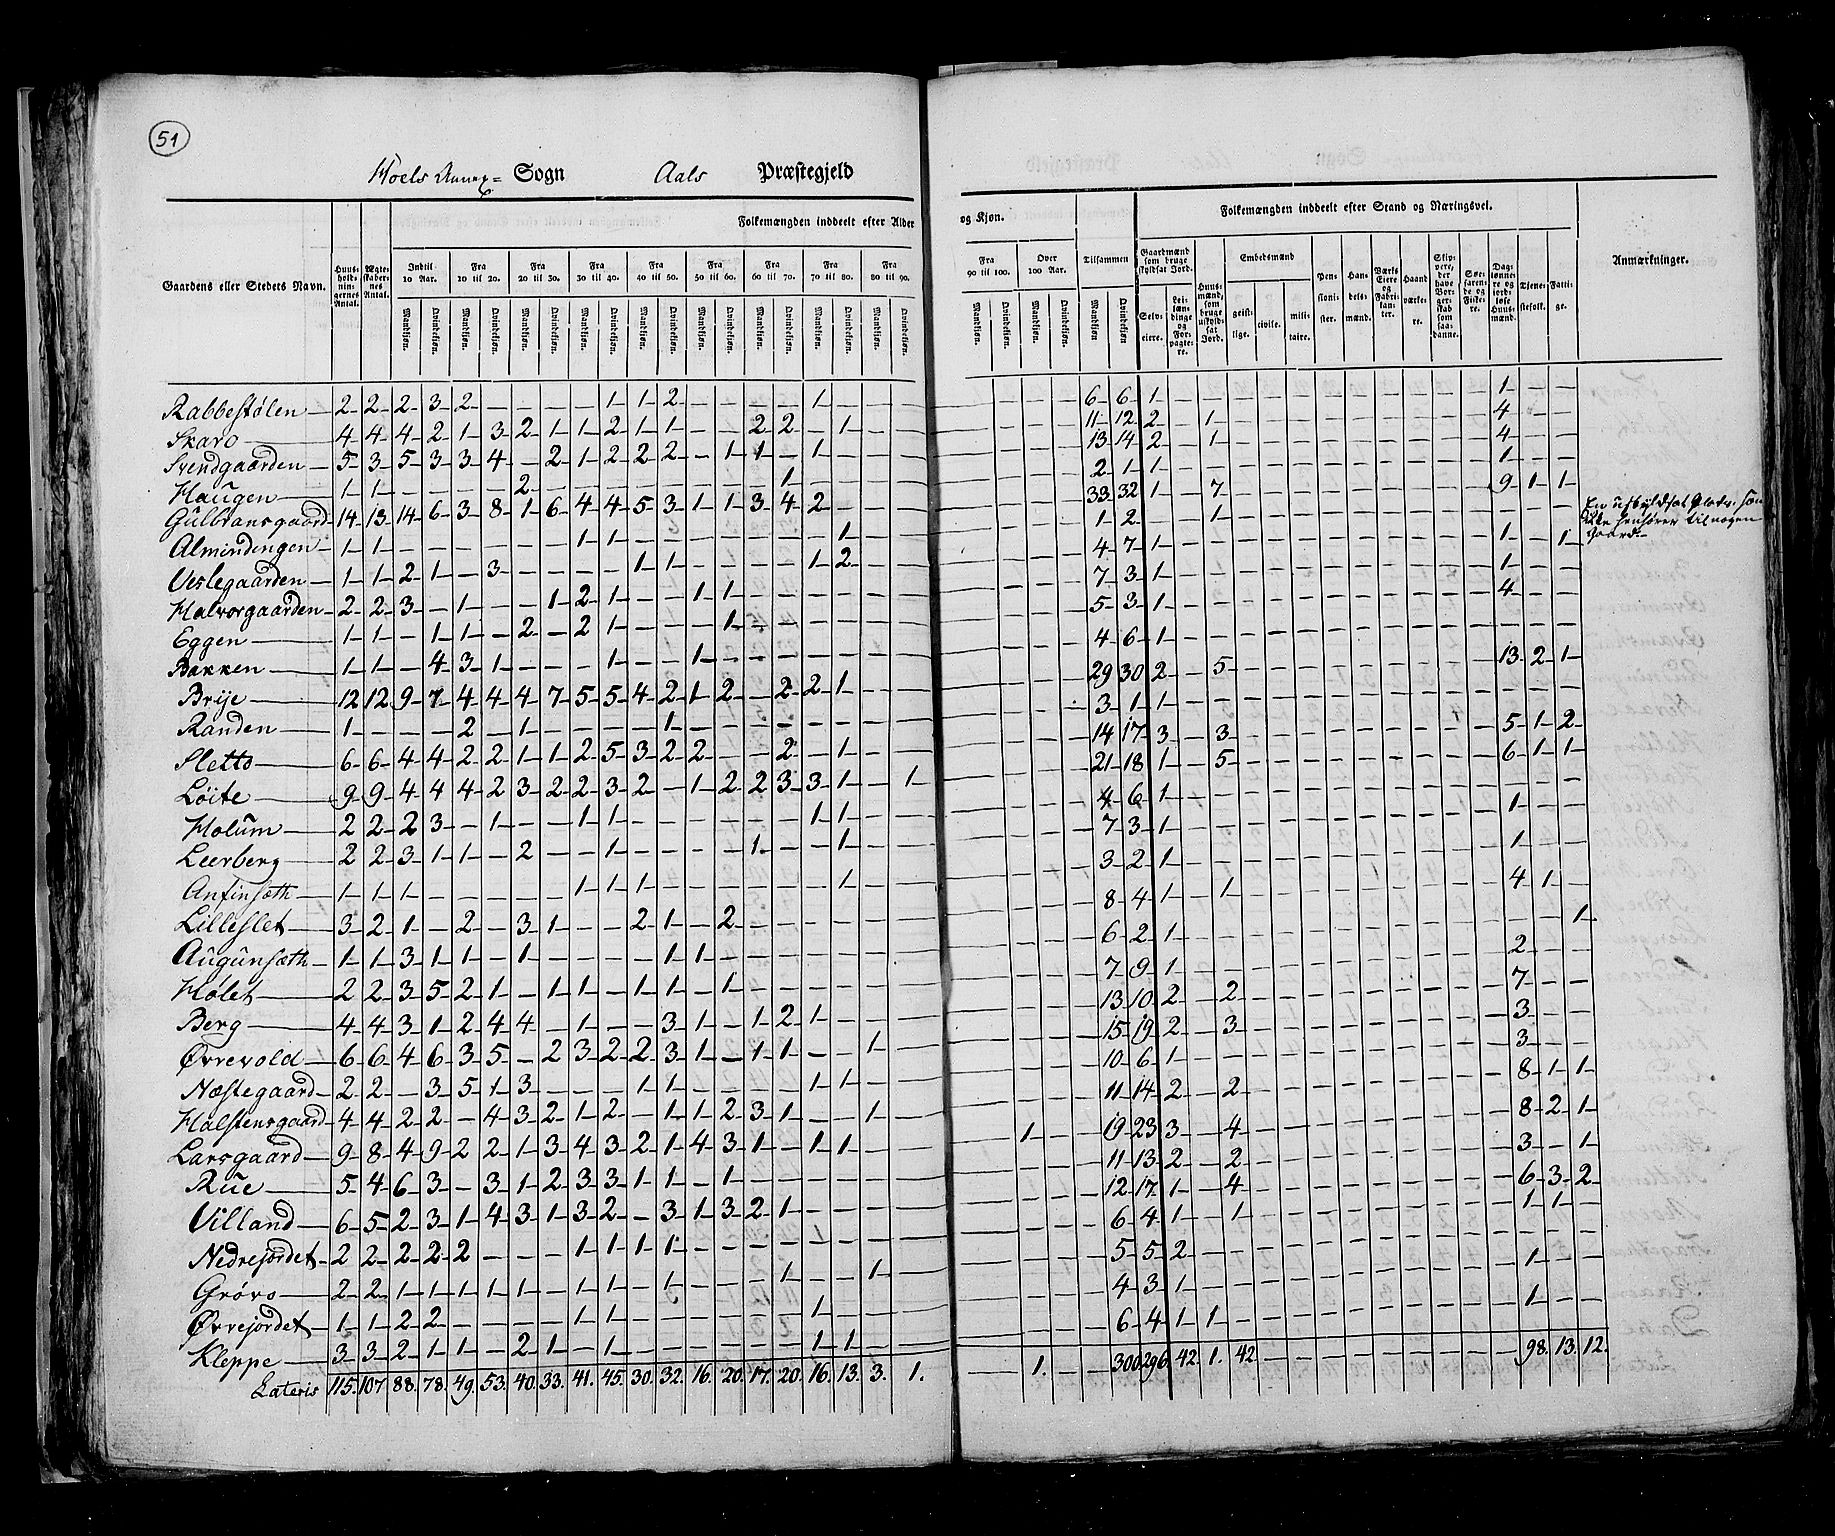 51
Hoels Annex= Sogn Aals Præstegjeld
Folkemængden inddeelt efter Alder og Kjøn.
Folkemængden inddeelt efter Stand og Næringsvei.
Gaardens eller Stedets Navn.
Huus-holdningernes Antal.
Ægteskabernes Antal.
Indtil 10 Aar. Fra 10 til 20. Fra 20 til 30. Fra 30 til 40. Fra 40 til 50. Fra 50 til 60. Fra 60 til 70. Fra 70 til 80. Fra 80 til 90.
Fra 90 til 100. Over 100 Aar. Tilsammen
Mandkiøn. Qvindekiøn.
Gaardmænd som bruge skyldsat Jord. Selveiere. Leilændinge og Forpagtere.
Huusmænd, som bruge uskyldsat Jord.
Embedsmænd geistlige. civile. militaire.
Pensionister. Handelsmænd. Værks Eiere og Fabrikanter. Haandværkere.
Skippere, der have Borgerskab som saadanne.
Søefarende og Fiskere.
Daglønnere og jordløse Huusmænd.
Tjenestefolk. Fattige.
Anmærkninger.
Rabbestølen 2 2 2 3 2 – – – – 1 1 2 – – – – 1 – – – – – – – 6 6 1 – – – – – – – – – – – – 1 – –
Skaro 4 4 4 2 1 3 2 1 1 2 1 1 – – 2 2 – 1 – – – – – – 11 12 2 – 1 – – – – – – – – – – 4 – –
Svendgaarden 5 3 5 3 3 4 – 2 1 2 2 2 – 1 1 – 1 – – – – – – – 13 14 2 – 1 – – – – – – – – – – 4 – –
Haugen 1 1 – – – – 2 – – – – – – – – 1 – – – – – – – – 2 1 1 – – – – – – – – – – – – 1 – –
Gulbransgaard 14 13 14 6 3 8 1 6 4 4 5 3 1 1 3 4 2 – – – – – – – 33 32 1 – 7 – – – – – – – – – – 9 1 1
Almindengen 1 1 – – – – – – 1 1 – – – – – – – 1 – – – – – – 1 2 – – 1 – – – – – – – – – – – – –
En uskyldsat Plads, som
ikke henhører til nogen
Gaard.
Veslegaarden 1 1 2 1 – 3 – – – – 1 1 – – – – 1 2 – – – – – – 4 7 1 – – – – – – – – – – – – 1 – 1
Halvorgaarden 2 2 3 – 1 – – 1 2 1 – – 1 1 – – – – – – – – – – 7 3 1 – – – – – – – – – – – – 1 – –
Eggen 1 1 – 1 1 – 2 – 2 1 – – – 1 – – – – – – – – – – 5 3 1 – – – – – – – – – – – – 4 – –
Bakken 1 1 – 4 3 1 – – – 1 – – 1 – – – – – – – – – – – 4 6 1 – – – – – – – – – – – – – – –
Brije 12 12 9 7 4 4 4 7 5 5 4 2 1 2 – 2 2 1 – – – – – – 29 30 2 – 5 – – – – – – – – – – 13 2 1
Randen 1 – – – 2 – 1 – – – – 1 – – – – – – – – – – – – 3 1 1 – – – – – – – – – – – – – – –
Sletto 6 6 4 4 2 2 1 1 2 5 3 2 2 – – 2 – 1 – – – – – – 14 17 3 – 3 – – – – – – – – – – 5 1 2
Løite 9 9 4 4 4 2 3 2 2 3 2 – 1 2 2 3 3 1 – 1 – – – – 21 18 1 – 5 – – – – – – – – – – 6 1 1
Holum 2 2 2 3 – 1 – – 1 1 – – – – – – 1 1 – – – – – – 4 6 1 – – – – – – – – – – – – – – –
Leerberg 2 2 3 1 1 – 2 – – 1 – – – – 1 – – 1 – – – – – – 7 3 1 – – – – – – – – – – – – 1 – –
Anfinsæth 1 1 1 – – – – – 1 1 1 – – – – – – 1 – – – – – – 3 2 1 – – – – – – – – – – – – 1 – –
Lilleslet 3 2 1 – 2 – 3 1 – – 2 1 – 2 – – – – – – – – – – 8 4 1 – 1 – – – – – – – – – – 4 1 –
Augunsæth 1 1 3 1 1 – 1 – – – – 1 1 – – – – – – – – – – – 6 2 1 – – – – – – – – – – – – – – 1
Holet 2 2 3 5 2 1 – 1 1 – 1 1 – 1 – – – – – – – – – – 7 9 1 – – – – – – – – – – – – 2 – –
Berg 4 4 3 1 2 4 4 – 1 – – 3 1 – 1 2 1 – – – – – – – 13 10 2 – 2 – – – – – – – – – – 7 – –
Øvrevold 6 6 4 6 3 5 – 2 3 2 2 3 1 – 1 1 – – 1 – – – – – 15 19 2 – 3 – – – – – – – – – – 3 – –
Næstegaard 2 2 – 3 5 1 3 – – – 1 1 – – – – 1 1 – – – – – – 10 6 1 – – – – – – – – – – – – 3 – –
Halstensgaard 4 4 2 2 – 4 3 2 1 2 – 1 1 2 3 1 – – 1 – – – – – 11 14 2 – 2 – – – – – – – – – – 8 1 1
Larsgaard 9 8 4 9 2 2 1 3 4 3 2 1 4 3 1 – 1 1 – – – – 1 – 19 23 3 – 4 – – – – – – – – – – 8 2 1
Rue 5 4 6 3 – 3 1 2 3 3 1 1 – 1 – – – – – – – – – – 11 13 2 – 2 – – – – – – – – – – 3 – 1
Villand 6 5 2 3 1 4 3 1 3 2 – 3 1 3 2 1 – – – – – – – – 12 17 1 – 4 – – – – – – – – – – 6 3 2
Nedrejordet 2 2 2 2 2 – – – 1 1 1 1 – – – – – – – – – – – – 6 4 1 – 1 – – – – – – – – – – 1 1 –
Grøvo 2 2 1 1 1 1 1 – 1 1 – 1 – – – 1 – – 1 – – – – – 5 5 2 – – – – – – – – – – – – – – –
Øvrejordet 1 1 2 2 – – – – 1 1 – – – – – – 1 – – – – – – – 4 3 1 – – – – – – – – – – – – 1 – –
Kleppe 3 3 2 1 1 – 2 1 – 1 – – – – – – 1 1 – – – – – – 6 4 1 1 – – – – – – – – – – – 1 – –
Lateris 115. 107 88. 78. 49. 53. 40. 33. 41. 45. 30. 32. 16. 20. 17. 20. 16. 13. 3. 1. – – 1. – 300 296 42. 1. 42 – – – – – – – – – – 98. 13. 12.